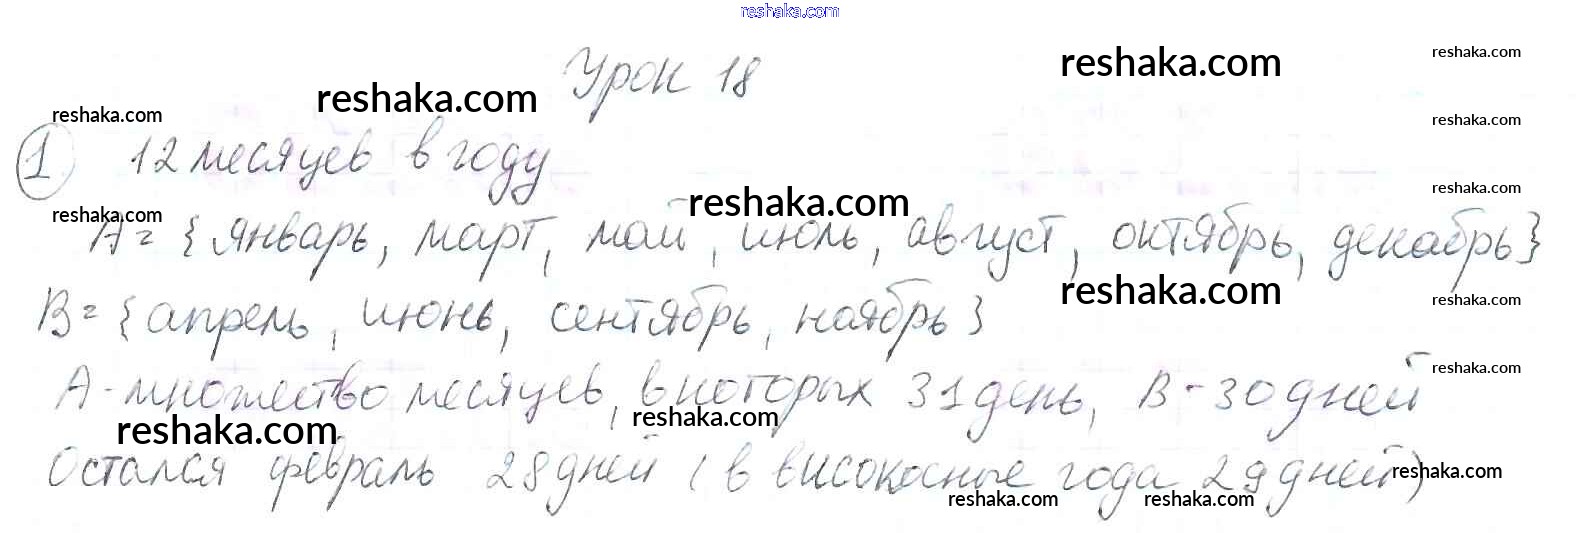 reshaka.com
Урок 18
reshaka.com
reshaka.com
reshaka.com
reshaka.com
reshaka.com
1 12 месяцев в году
reshaka.com
reshaka.com
reshaka.com
A = {январь, март, май, июль, август, октябрь, декабрь}
reshaka.com
reshaka.com
B = {апрель, июнь, сентябрь, ноябрь}
reshaka.com
A - множество месяцев, в которых 31 день, B - 30 дней
reshaka.com
reshaka.com
Остался февраль 28 дней (в високосные года 29 дней)
reshaka.com
reshaka.com
reshaka.com